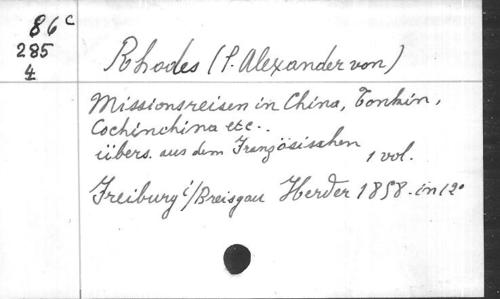 86c
285
4
Rhodes (P. Alexander von)
Missionsreisen in China, Tonkin,
Cochinchina etc..
übers. aus dem Französischen
1 vol.
Freiburg i/Breisgau Herder 1858. in 12°